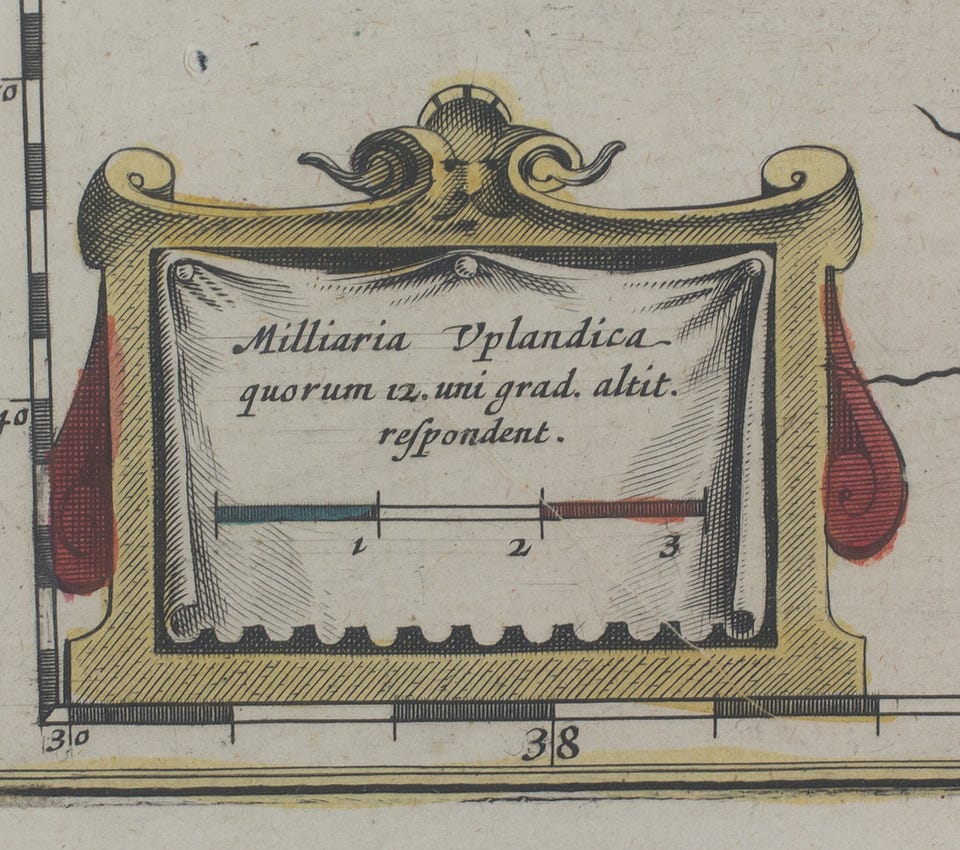 Milliaria Vplandica
quorum 12. uni grad. altit.
reſpondent.
1 2 3
40
30
38